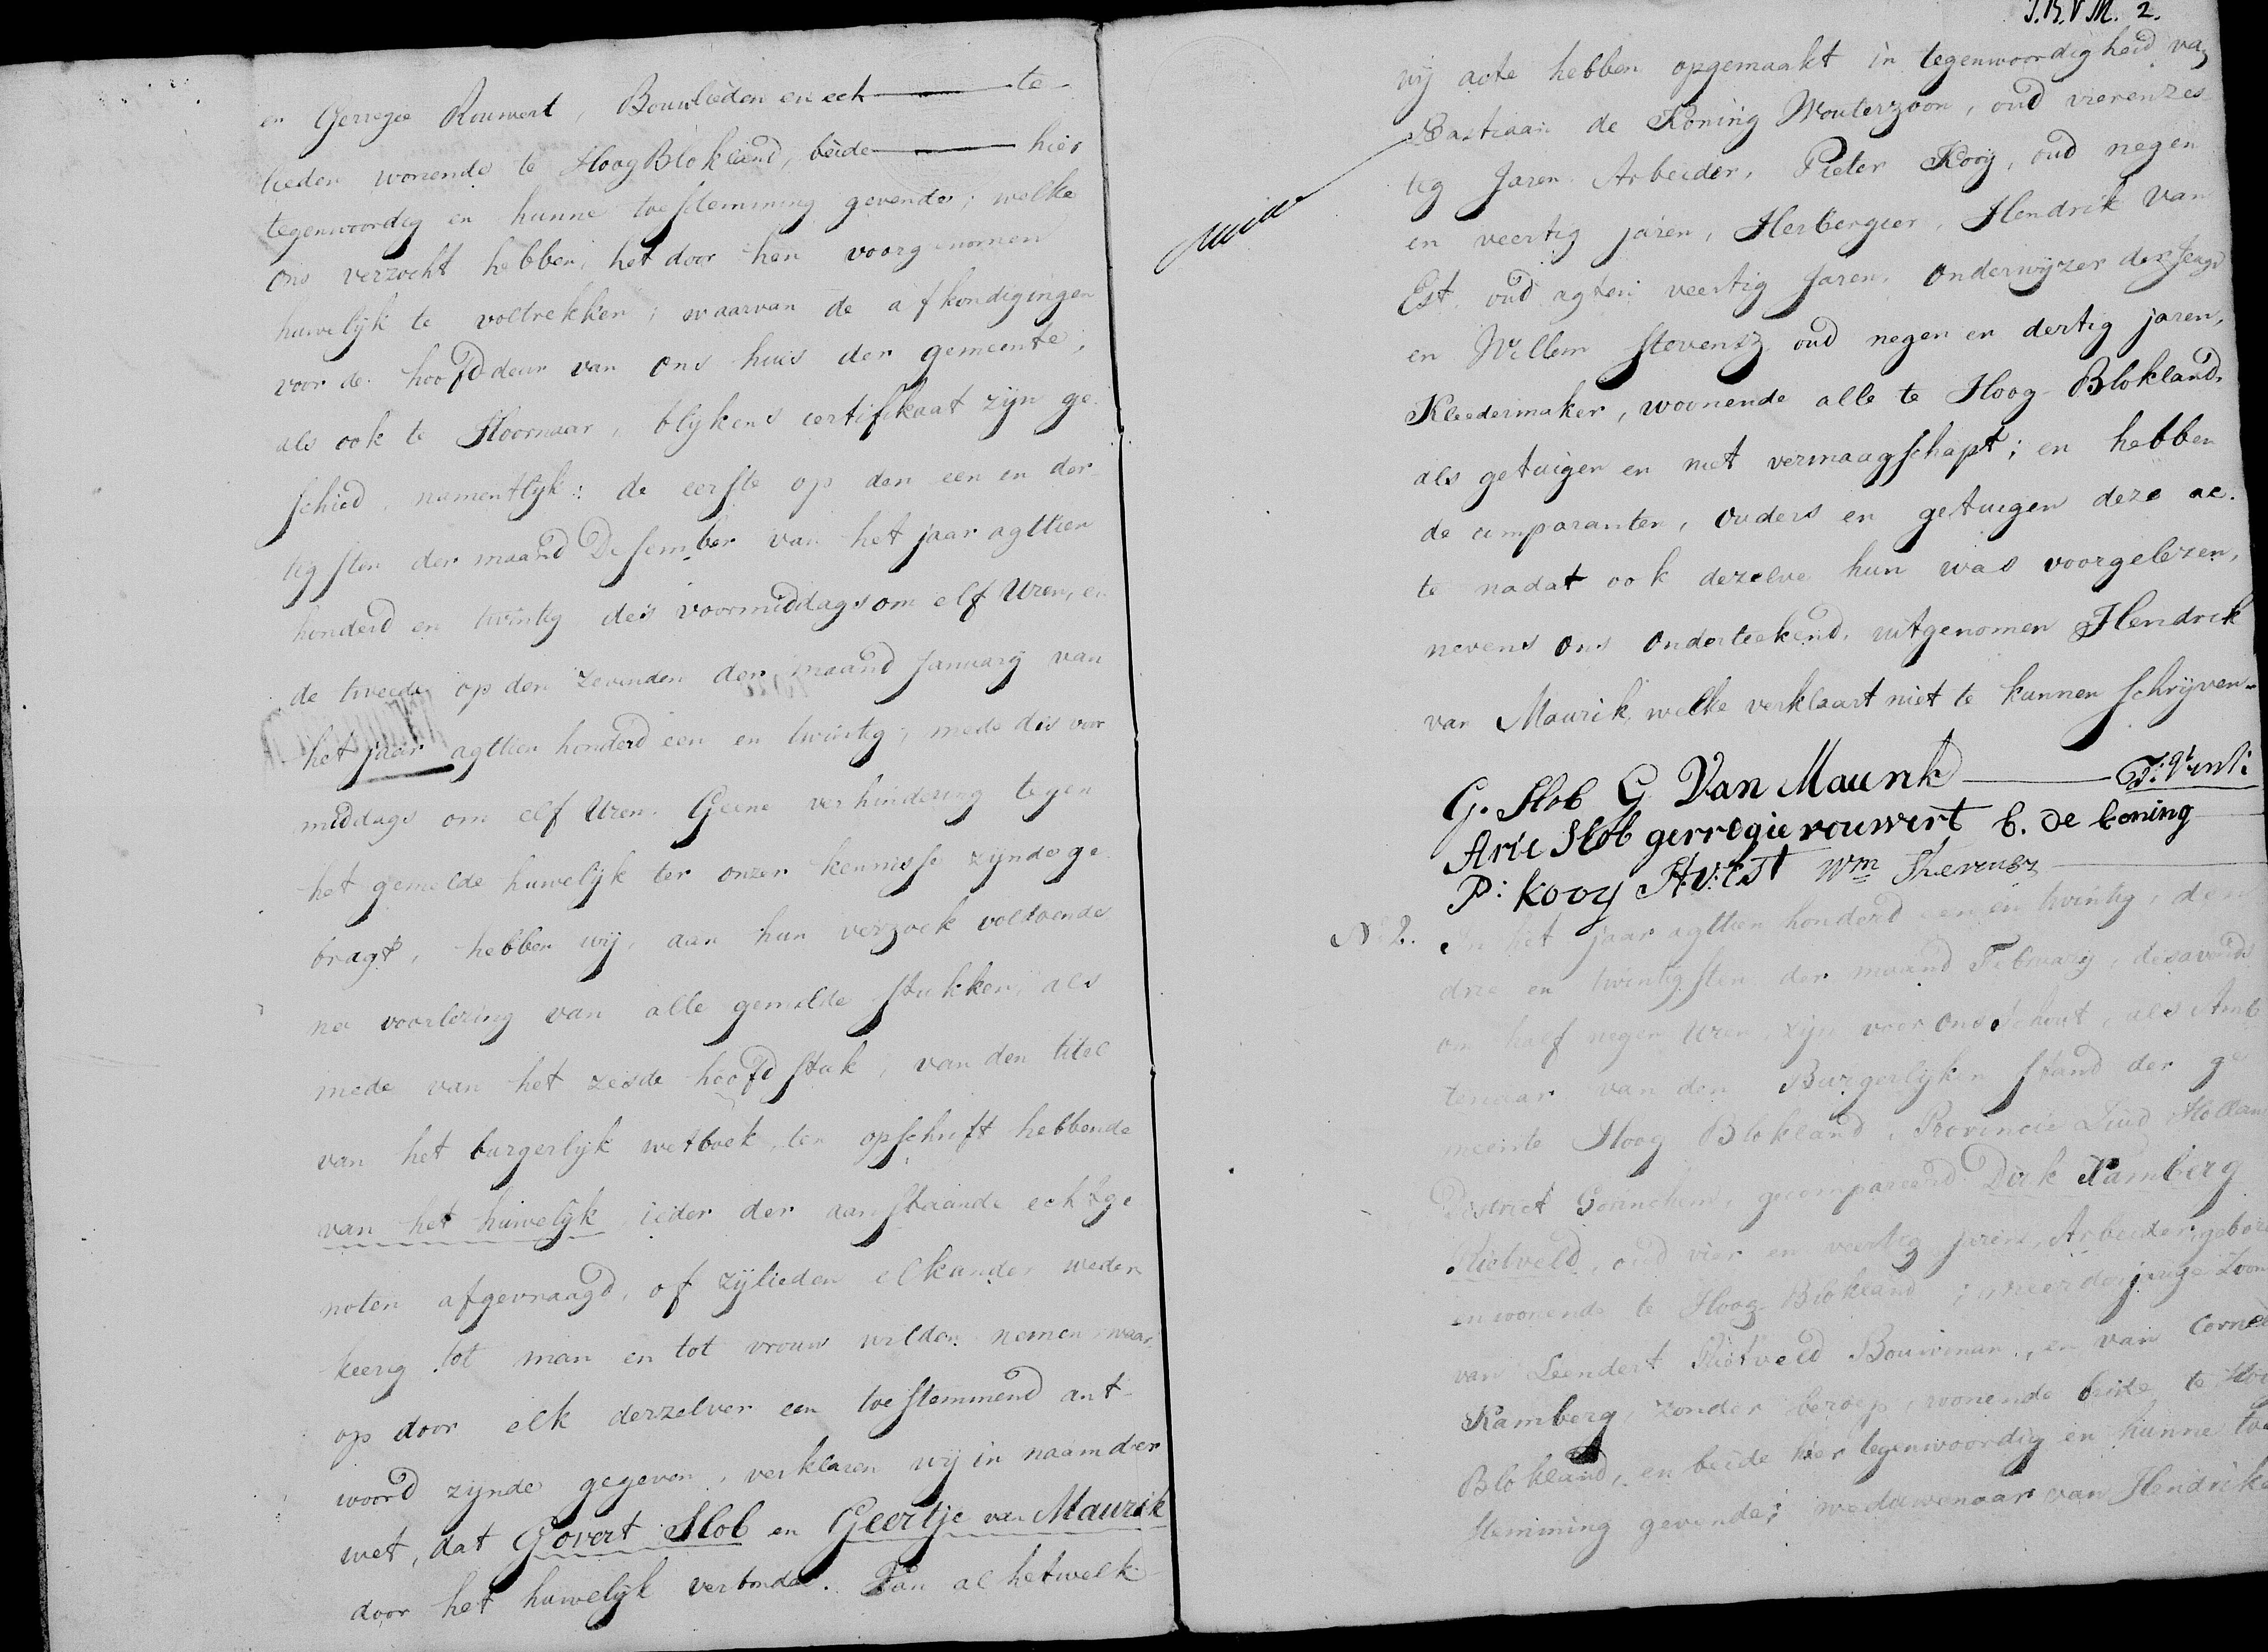 en Gerregie Rouwert, Bouwlieden en ech te
lieden wonende te Hoog Blokland, beide hier
tegenwoordig en hunne toestemming gevende; welke
ons verzocht hebben, het door hen voorgenomen
huwelijk te voltrekken; waarvan de afkondigingen
voor de hoofddeur van ons huis der gemeente,
als ook te Hoornaar, blijkens certifikaat zijn ge
schied, namentlyk: de eerste op den een en der
tigsten der maand Desember van het jaar agttien
honderd en twintig des voormiddags om elf Uren, en
de tweede op den zevenden der maand January van
het jaar agttien honderd een en twintig, mede des voor
middags om elf Uren. Geene verhindering tegen
het gemelde huwelijk ter onzer kennisse zynde ge
bragt, hebben wij, aan hun verzoek voldoende
na voorlezing van alle gemelde stukken, als
mede van het zesde hoofdstuk, van den titel
van het burgerlyk wetboek, ten opschrift hebbende
van het huwelijk ieder der aanstaande echtge
noten afgevraagd, of zijlieden elkander weder
keerig tot man en tot vrouw wilden nemen waar
op door elk derzelver een toestemmend ant-
woord zijnde gegeven, verklaren wij in naam der
wet, dat Govert Slob en Geertje van Maurik
door het huwelijk verbonden. Van al hetwelk
J.B.V.M. 2.
wij acte hebben opgemaakt in tegenwoordigheid van
Bastiaan de Koning Wouterzoon, oud vierenzes
tig Jaren Arbeider, Pieter Kooij, oud negen
en veertig jaren, Herbergier, Hendrik van
Est oud agten veertig Jaren, Onderwijzer der Jeugd
en Willem Stevensz oud negen en dertig jaren,
Kleedermaker, woonende alle te Hoog-Blokland,
als getuigen en niet vermaagschapt; en hebben
de comparanten, Ouders en getuigen deze ac.
te nadat ook dezelve hun was voorgelezen,
nevens ons Onderteekend, uitgenomen Hendrik
van Maurik, welke verklaart niet te kunnen schrijven.
G. Slob G Van Maurik
Arie Slob gerregie rouwert b. de koning
P: kooy H.V: EST Wm Stevensz
No 2. In het jaar agttien honderd een en twintig, den
drie en twintigsten der maand February, des avonds
om half negen Uren, zijn voor Ons Schout, als Amb
tenaar van den Burgerlyken stand der ge
meente Hoog Blokland, Provincie Zuid Holland
District Gorinchem, gecompareerd Dirk Ramberg
Rietveld, oud vier en veertig jaren, Arbeider, gebore
en wonende te Hoog-Blokland; meerderjarige Zoon
van Leendert Rietveld Bouwman, en van Cornel
Ramberg, zonder beroep, wonende beide te Hoo
Blokland, en beide hier tegenwoordig en hunne toe
stemming gevende; weduwenaar van Hendrike